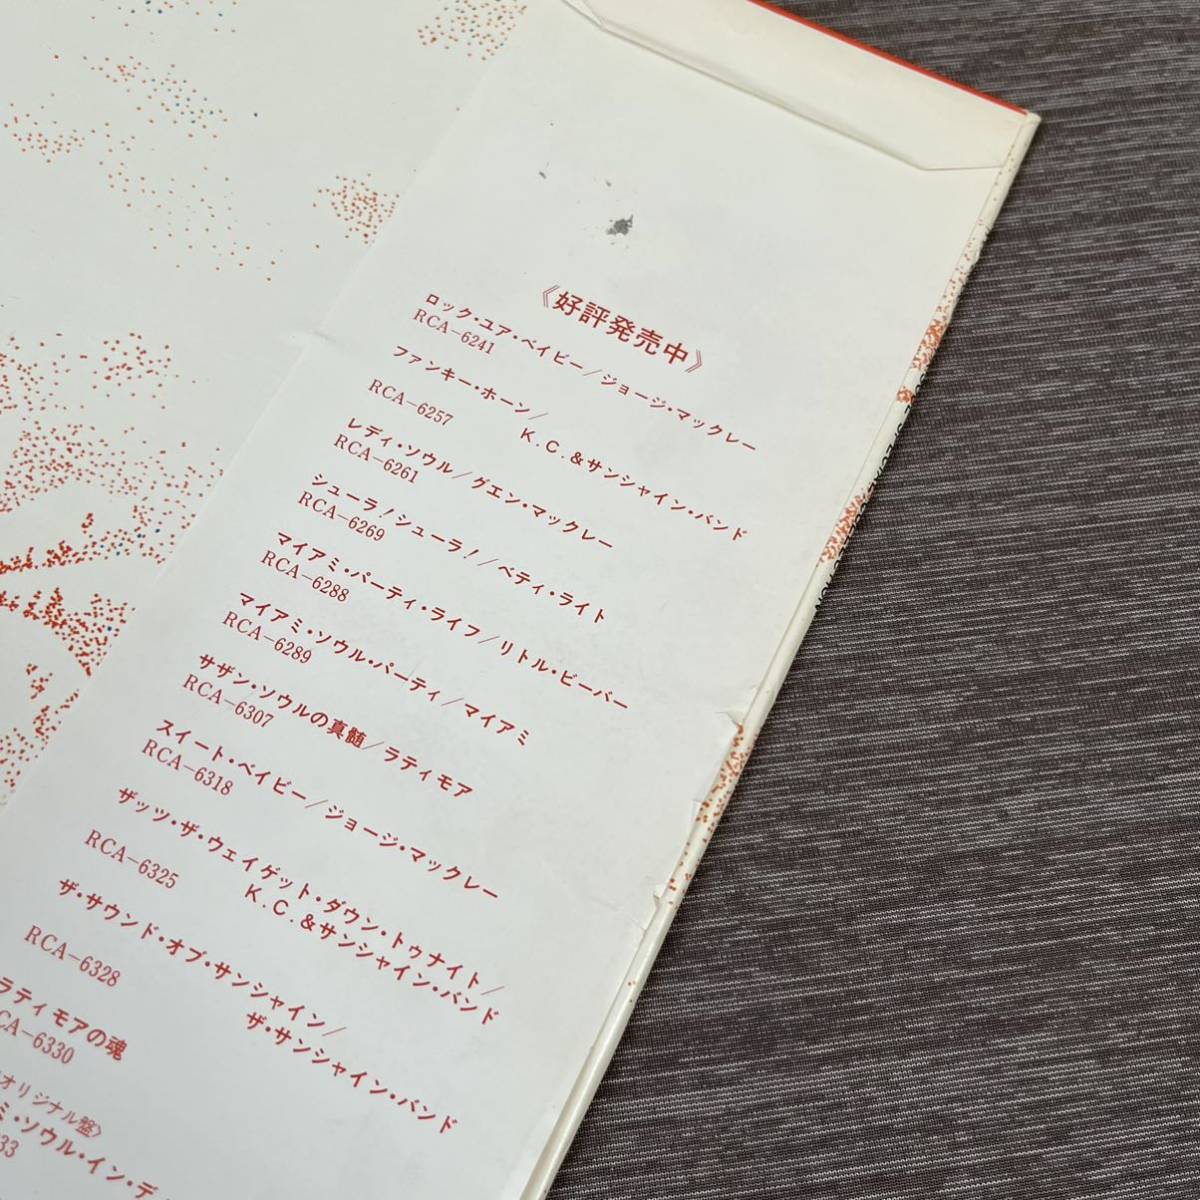 《好評発売中》
ロック・ユア・ベイビー／ジョージ・マックレー
RCA-6241
ファンキー・ホーン／
RCA-6257 K.C.&サンシャイン・バンド
レディ・ソウル／グエン・マックレー
RCA-6261
シューラ！シューラ！／ベティ・ライト
RCA-6269
マイアミ・パーティ・ライフ／リトル・ビーバー
RCA-6288
マイアミ・ソウル・パーティ／マイアミ
RCA-6289
サザン・ソウルの真髄／ラティモア
RCA-6307
スイート・ベイビー／ジョージ・マックレー
RCA-6318
ザッツ・ザ・ウェイゲット・ダウン・トゥナイト／
RCA-6325 K.C.&サンシャイン・バンド
ザ・サウンド・オブ・サンシャイン／
RCA-6328 ザ・サンシャイン・バンド
ラティモアの魂
CA-6330
オリジナル盤》
ミ・ソウル・イン・デ
33